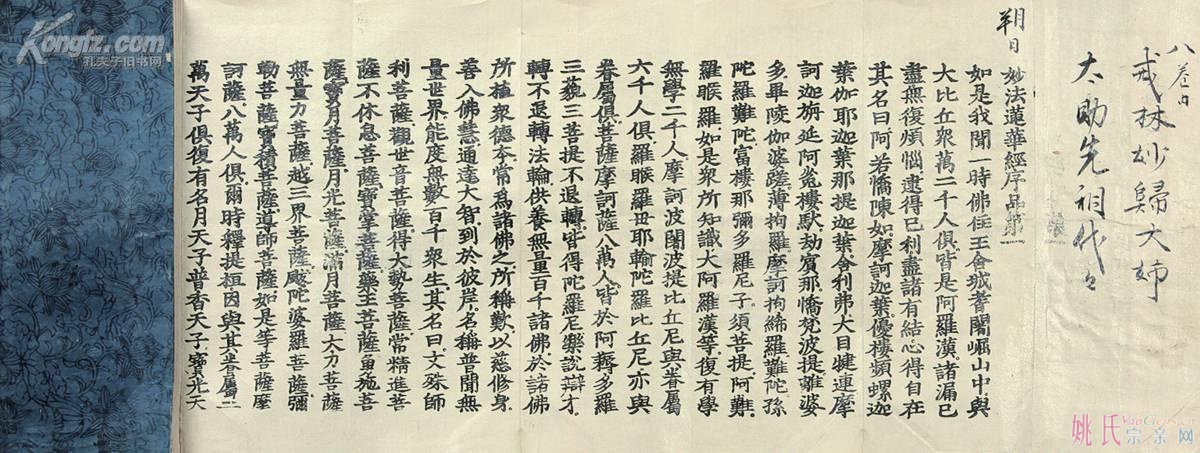 八巻内
戒林妙歸大姉
太助先祖代々
朔日
妙法蓮華經序品第一
如是我聞一時佛住王舍城耆闍崛山中與
大比丘衆萬二千人俱皆是阿羅漢諸漏已
盡無復煩惱逮得已利盡諸有結心得自在
其名曰阿若憍陳如摩訶迦葉優樓頻螺迦
葉伽耶迦葉那提迦葉舍利弗大目犍連摩
訶迦旃延阿㝹樓馱劫賓那憍梵波提離婆
多畢陵伽婆蹉薄拘羅摩訶拘絺羅難陀孫
陀羅難陀富樓那彌多羅尼子須菩提阿難
羅睺羅如是衆所知識大阿羅漢等復有學
無學二千人摩訶波闍波提比丘尼與眷屬
六千人俱羅睺羅母耶輸陀羅比丘尼亦與
眷屬俱菩薩摩訶薩八萬人皆於阿耨多羅
三藐三菩提不退轉皆得陀羅尼樂說辯才
轉不退轉法輪供養無量百千諸佛於諸佛
所植衆德本常為諸佛之所稱歎以慈修身
善入佛慧通達大智到於彼岸名稱普聞無
量世界能度無數百千衆生其名曰文殊師
利菩薩觀世音菩薩得大勢菩薩常精進菩
薩不休息菩薩寶掌菩薩藥王菩薩勇施菩
薩寶月菩薩月光菩薩滿月菩薩大力菩薩
無量力菩薩越三界菩薩颰陀婆羅菩薩彌
勒菩薩寶積菩薩導師菩薩如是等菩薩摩
訶薩八萬人俱爾時釋提桓因與其眷屬二
萬天子俱復有名月天子普香天子寶光天
Kongfz.com
孔夫子旧书网
姚氏
YaoGens.cn
宗亲网